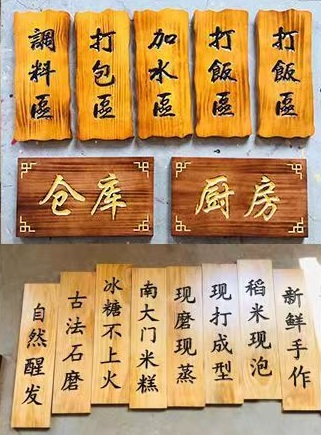 調料區
打包區
加水區
打飯區
打飯區
仓库
厨房
自然醒发
古法石磨
冰糖不上火
南大门米糕
现磨现蒸
现打成型
稻米现泡
新鲜手作